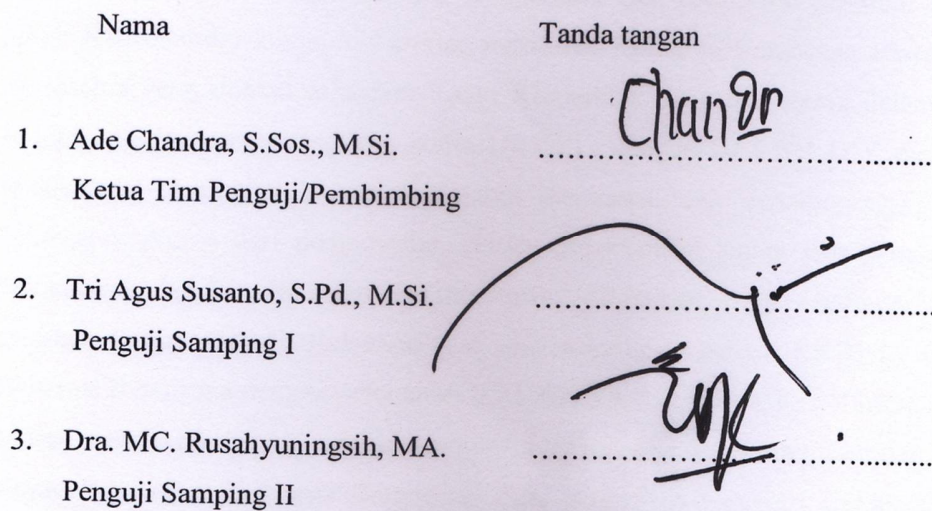 Nama Tanda tangan
Chandr
1. Ade Chandra, S.Sos., M.Si. ........................................
Ketua Tim Penguji/Pembimbing
2. Tri Agus Susanto, S.Pd., M.Si. ........................................
Penguji Samping I
3. Dra. MC. Rusahyuningsih, MA. ........................................
Penguji Samping II